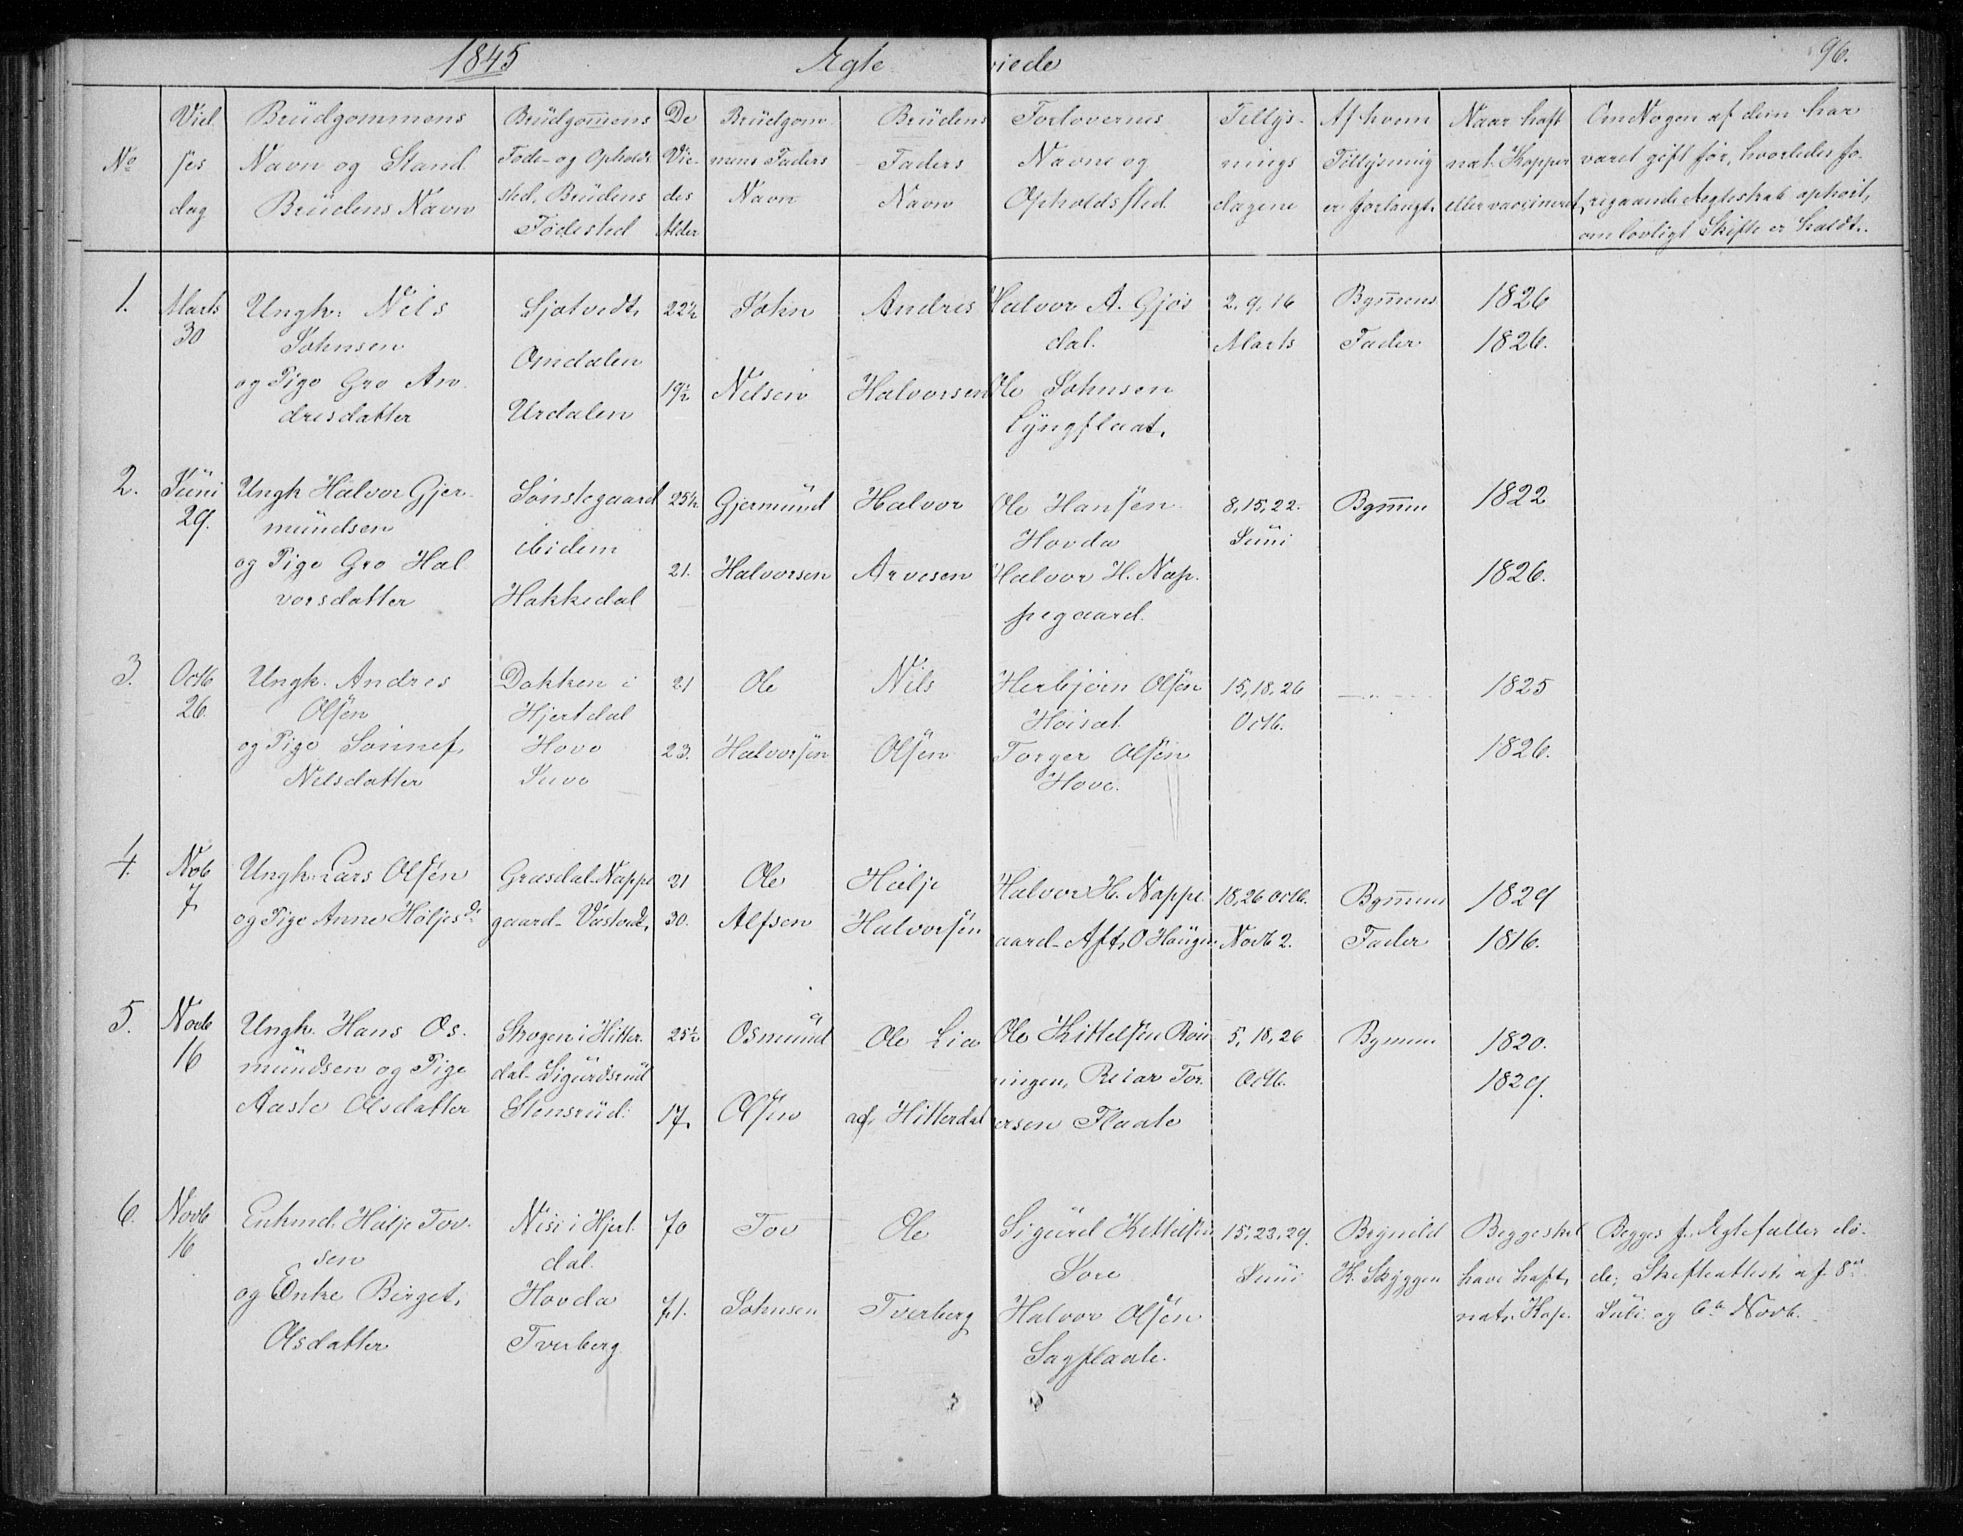 1845 Egteviede 96.
No
Viel
ses
dag
Brüdgommens
Navn og Stand
Brüdens Navn
Brüdgom̅ens
Føde- og Opholds
sted. Brüdens
Fødested
De
Vie-
des
Alder
Brüdgom
mens Faders
Navn
Brüdens
Faders
Navn
Forlovernes
Navne og
Opholdssted
Tillys-
nings
dagene
Af hvem
Tillysning
er forlangt.
Naar haft
nat. Kopper
eller vaccineret
Om Nogen af dem har
været gift før, hvorledes fo-
regaaende Ægteskab ophørt,
om lovligt Skifte er holdt.
1. Marts
30
Ungk. Nils
Johnsen
og Pige Gro An-
dresdatter
Sjotvedt,
Omdalen
Urdalen
22½
19½
John
Nelsen
Andres
Halvorsen
Halvor A. Gjøs
dal.
Ole Johnsen
Lyngflaat.
2. 9. 16
Marts
Bgm̅ens
Fader
1826
1826.
2. Juni
29.
Ungk Halvor Gjer-
mundsen
og Pige Gro Hal
vorsdatter
Sønstegaard
ibidem
Hakkedal
25½
21.
Gjermünd
Halvorsen
Halvor
Arvesen
Ole Hansen
Hovda
Halvor H. Nap-
pegaard.
8, 15, 22.
Juni
Bgm̅en
1822
1826.
3. Octb
26.
Ungk. Andres
Olsen
og Pige Sonnef,
Nelsdatter
Dakken i
Hjertdal
Hove
21
23.
Ole
Halvorsen
Nils
Olsen
Herbjørn Olsen
Hoisæt
Torger Olsen
Hove.
15, 18, 26
Octb.
— " —
1825
1826.
4. Novb
7
Ungk. Lars Olsen
og Pige Anne Høljesdr
Grasdal-Nappe
gaard-
21
30.
Ole
Alfsen
Hølje
Halvorsen
Halvor H. Nappe
gaard- Aft. O Haugen
18, 26 Octb.
Novb 2.
Bgm̅ens
Fader
1829
1816.
5. Novb
16
Ungk. Hans Os-
mundsen og Pige
Aaste Olsdatter
Skogen i Hitter
dal- Sigurdsrud
Stensrüd.
25½
17
Osmund
Olsen
Ole Lia
af Hitterdal
Ole Kittelsen Røn
ningen, Reiar Tor
ersen Flaate
5, 18, 26
Octb.
Bgmen
1820.
1829.
6. Novb
16
Enkmd. Hølje Tov-
sen
og Enke Birget,
Olsdatter
Nisi i Hjert
dal.
Hovda
Tverberg
70
71.
Tov
Johnsen
Ole
Tverberg
Sigurd Kittelsen
Sore
Halvor Olsen
Sagflaate.
15, 22, 29.
Juni
K. Skyggen
Begge skal
have haft
nat. Kop.
Begges f. Ægtefæller dø-
de; Skifteattest af 8de
Juli og 6te Novb.